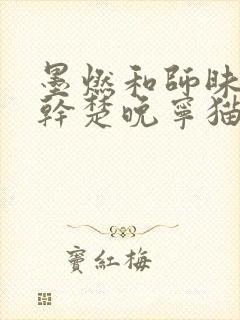 墨燃和師昧
幹楚晚寧猫
竇紅梅